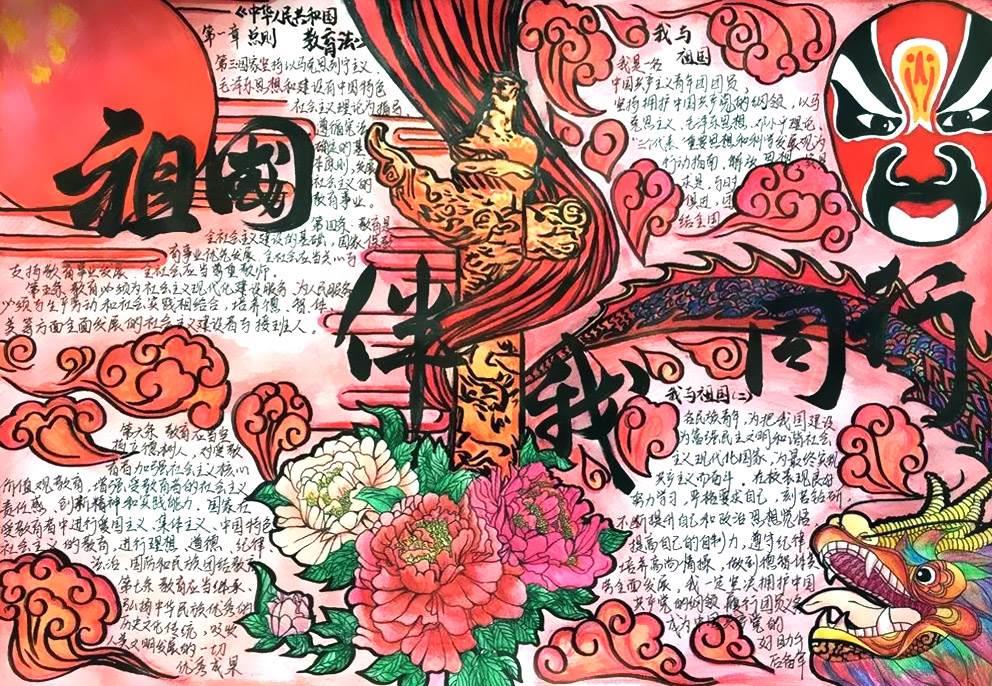 《中华人民共和国
教育法》
第一章 总则
第三国家坚持以马克思列宁主义、
毛泽东思想和建设有中国特色
社会主义理论为指导,
遵循宪法
确定的基
本原则,发展
社会主义的
教育事业。
第四条 教育是
社会主义建设的基础,国家保障
教育事业优先发展。全社会应当关心与
支持教育事业发展。全社会应当尊重教师。
第五条 教育必须为社会主义现代化建设服务、为人民服务
必须与生产劳动和社会实践相结合,培养德、智、体
美等方面全面发展的社会主义建设者与接班人。
祖国
伴我同行
第六条 教育应当坚
持立德树人,对受教
育者加强社会主义核心
价值观教育,增强受教育者的社会主义
责任感、创新精神和实践能力。国家在
受教育者中进行爱国主义、集体主义、中国特色
社会主义的教育,进行理想、道德、纪律
法治、国防和民族团结教育
第七条 教育应当继承
弘扬中华民族优秀的
历史文化传统,吸收
人类文明发展的一切
优秀成果
我与
祖国
我是一名
中国共产主义青年团团员,
坚持拥护中国共产党的纲领,以马
克思主义、毛泽东思想、邓小平理论、
"三个代表"重要思想和科学发展观为
行动指南,解放思想,
求是,与时
俱进,团
结全国
我与祖国(二)
各民族青年,为把我国建设
为富强民主文明和谐社会
主义现代化国家,为最终实现
共产主义而奋斗。在校表现良好
努力学习,严格要求自己,刻苦钻研,
不断提升自己和政治思想觉悟,
提高自己的自制力,遵守纪律,
培养高尚情操,做到德智体美
劳全面发展,我一定坚决拥护中国
共产党的纲领,履行团员义务
成为中国共产党的
好助手
后备军